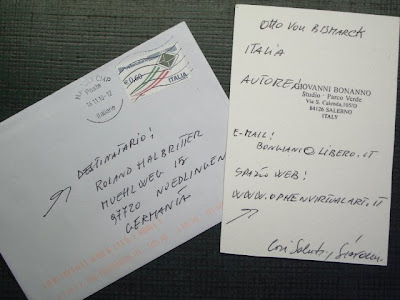 Poste
Italiane
€0,60
ITALIA
DESTINATARIO:
ROLAND HALBRITTER
MUEHLWEG 18
97720 NUEDLINGEN
GERMANIA
OTTO VON BISMARCK
ITALIA
AUTORE:
GIOVANNI BONANNO
Studio - Parco Verde
Via S. Calenda,105/D
84126 SALERNO
ITALY
E-MAIL:
BONGIANI@LIBERO.IT
SPAZIO WEB:
WWW.OPHENVIRTUALART.IT